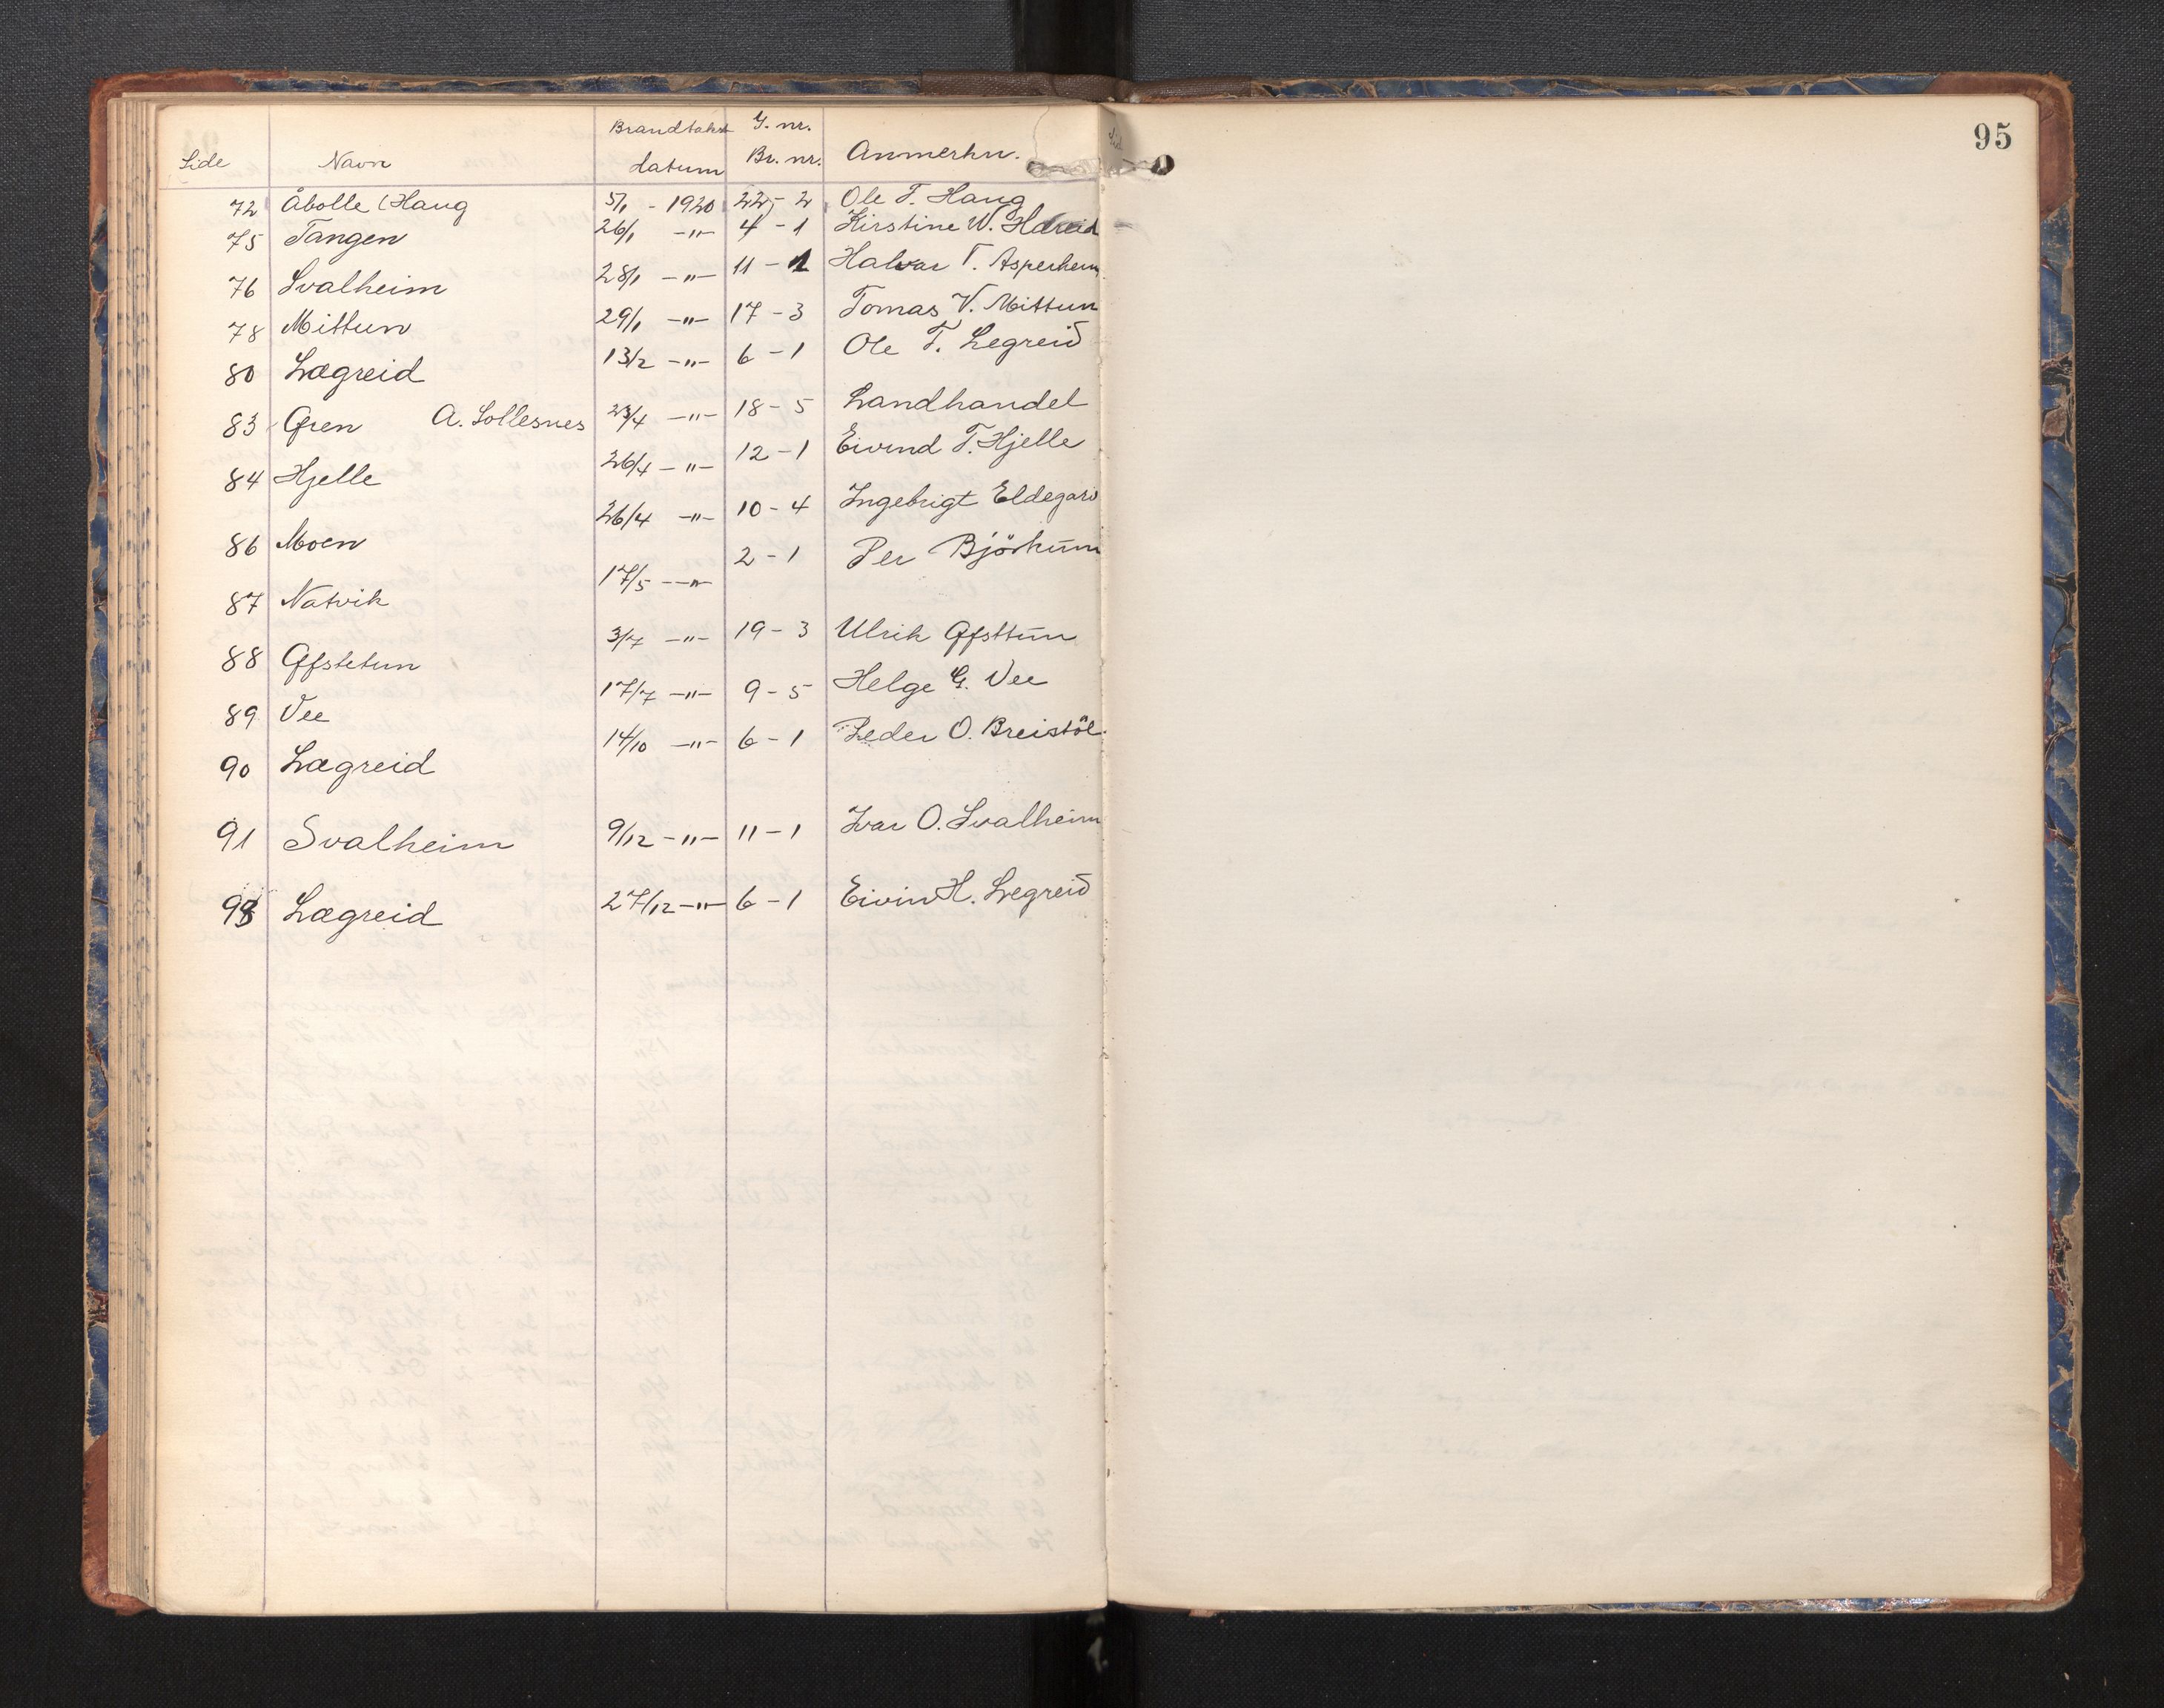 95
Side Navn Brandtakst datum G. nr. Br. nr. Anmerkn.
72 Åbolle (Haug 5/1 - 1920 22 - 2 Ole T. Haug
75 Tangen 26/1 -"- 4 - 1 Kirstine W.
76 Svalheim 28/1 -"- 11 - 1 Halvar T. Asperheim
78 Mittun 29/1 -"- 17 - 3 Tomas V. Mittun
80 Lægreid 13/2 -"- 6 - 1 Ole T. Legreid
83 Øren A. Sollesnes 23/4 -"- 18 - 5 Landhandel
84 Hjelle 26/4 -"- 12 - 1 Eivind T. Hjelle
86 Moen 26/4 -"- 10 - 4 Ingebrigt Eldegard
87 Natvik 17/5 -"- 2 - 1 Per Björkum
88 Øfstetun 3/7 -"- 19 - 3 Ulrik Øfsttun
89 Vee 17/7 -"- 9 - 5 Helge G. Vee
90 Lægreid 14/10 -"- 6 - 1 Peder O. Breistöl
91 Svalheim 9/12 -"- 11 - 1 Ivar O. Svalheim
93 Lægreid 27/12 -"- 6 - 1 Eivin H. Legreid